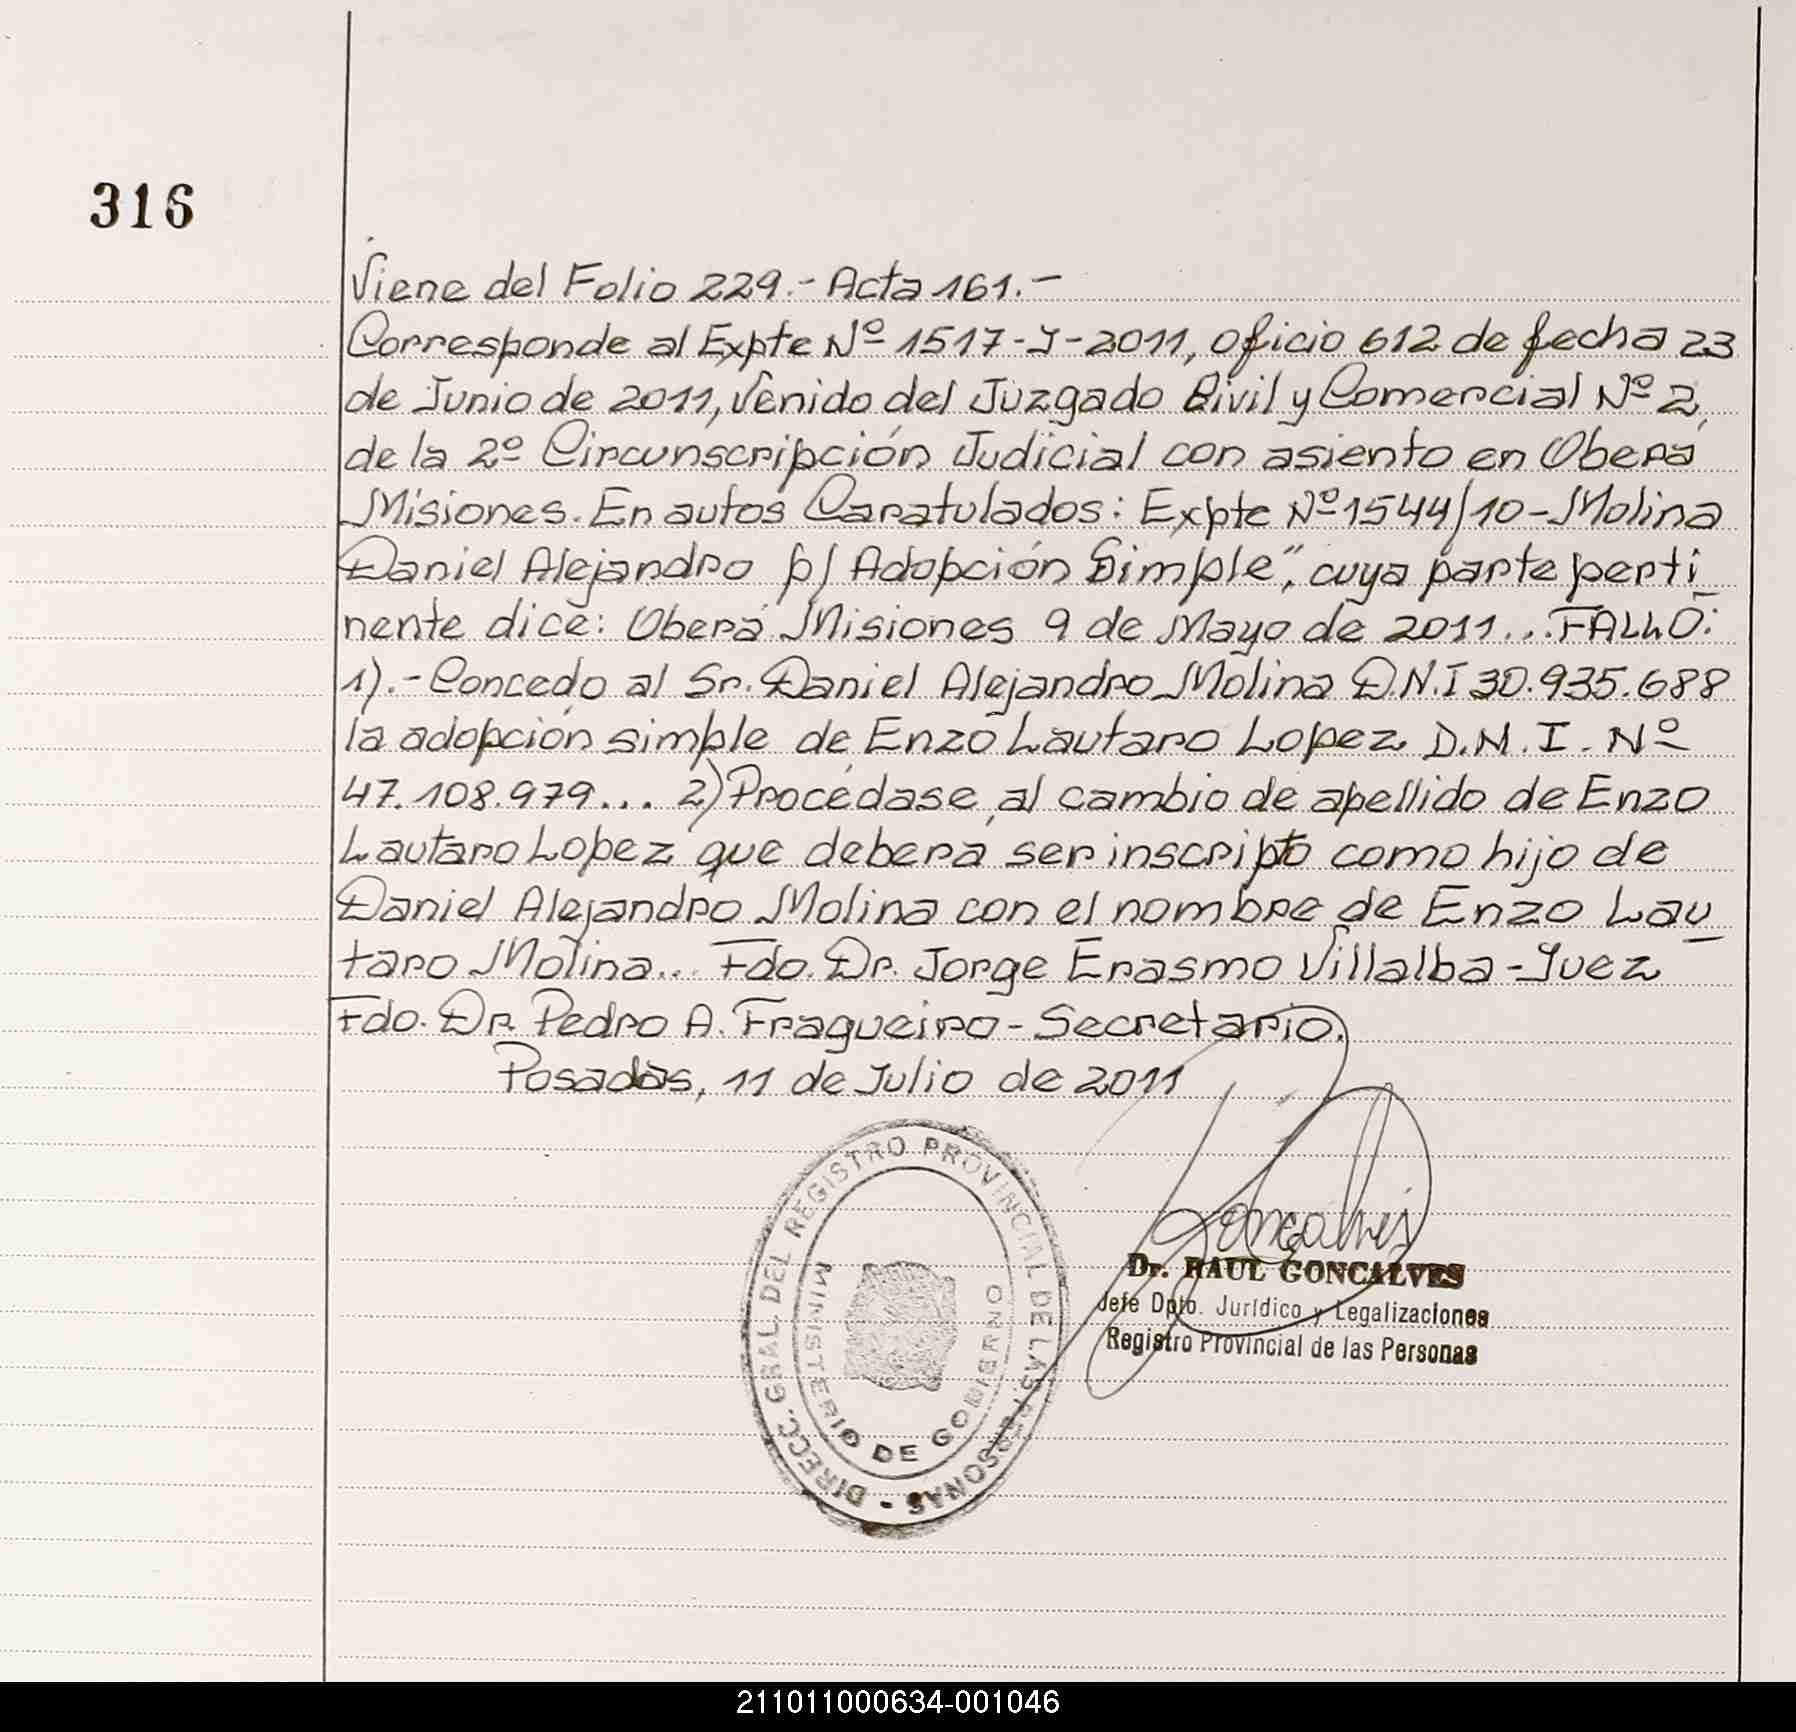 316
Viene del Folio 229.- Acta 161.-
Corresponde al Expte Nº 1517-J-2011, oficio 612 de fecha 23
de Junio de 2011, Venido del Juzgado Civil y Comercial Nº 2,
de la 2º Circunscripción Judicial con asiento en Oberá
Misiones. En autos Caratulados: Expte Nº 1544/10-Molina
Daniel Alejandro p/ Adopción Simple", cuya parte perti
nente dice: Oberá Misiones 9 de Mayo de 2011... FALLO:
1).- Concedo al Sr. Daniel Alejandro Molina D.N.I 30.935.688
la adopción simple de Enzo Lautaro Lopez D.N.I. Nº
47.108.979... 2) Procédase, al cambio de apellido de Enzo
Lautaro Lopez que deberá ser inscripto como hijo de
Daniel Alejandro Molina con el nombre de Enzo Lau
taro Molina... Fdo. Dr. Jorge Erasmo Villalba-Juez
Fdo. Dr. Pedro A. Fragueiro - Secretario.
Posadas, 11 de Julio de 2011
DIRECC. GRAL. DEL REGISTRO PROVINCIAL DE LAS PERSONAS -
MINISTERIO DE GOBIERNO
Goncalves
Dr. RAUL GONCALVES
Jefe Dpto. Jurídico y Legalizaciones
Registro Provincial de las Personas
211011000634-001046